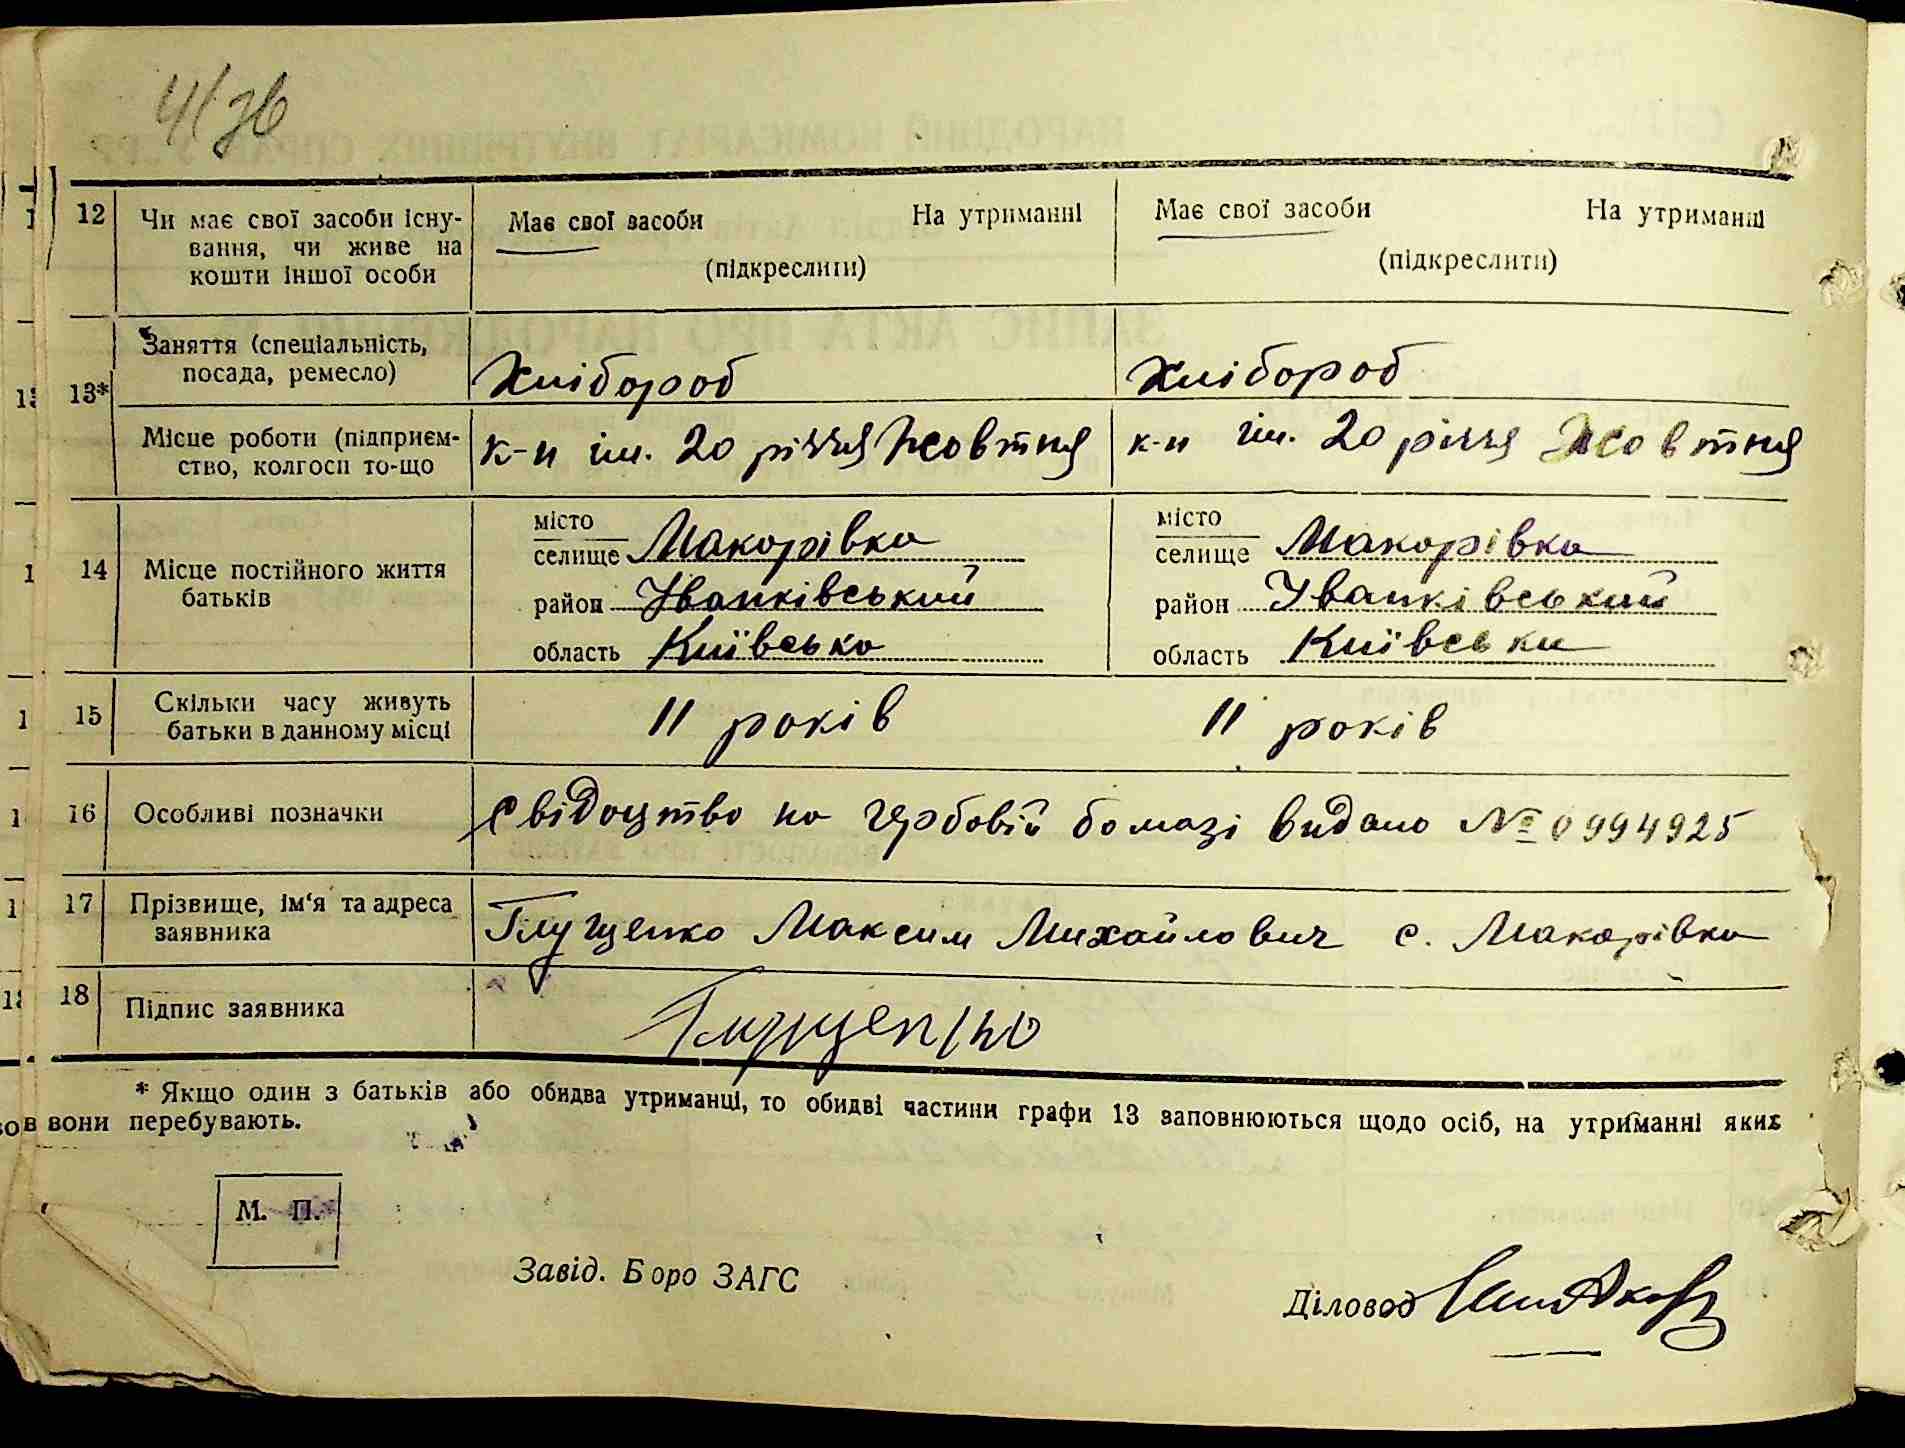 12 Чи має свої засоби існу- Має свої засоби На утриманні Має свої засоби На утриманні
вання, чи живе на
кошти іншої особи (підкреслити) (підкреслити)
13* Заняття (спеціальність,
посада, ремесло) Хлібороб Хлібороб
Місце роботи (підприєм- к-п ім. 20 річчя Жовтня к-п ім. 20 річчя Жовтня
ство, колгосп то-що
місто місто
селище Макарівка селище Макарівка
14 Місце постійного життя
батьків район Іванківський район Іванківський
область Київська область Київська
15 Скільки часу живуть
батьки в данному місці 11 років 11 років
16 Особливі позначки Свідоцтво на гербовій бомазі видано № 0994925
17 Прізвище, ім'я та адреса
заявника Глущенко Максим Михайлович с. Макарівка
18 Підпис заявника Глущенко
* Якщо один з батьків або обидва утриманці, то обидві частини графи 13 заповнюються щодо осіб, на утриманні яких
вони перебувають.
М. П.
Завід. Боро ЗАГС
Діловод